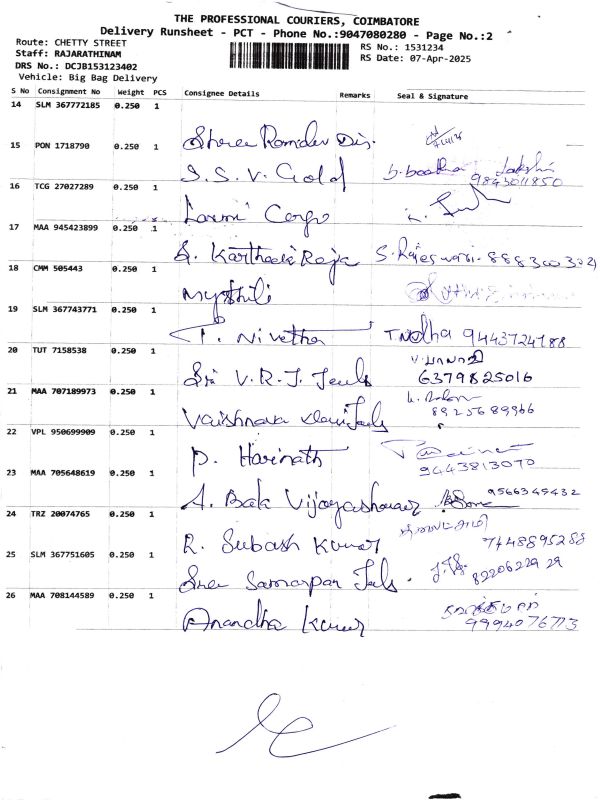 THE PROFESSIONAL COURIERS, COIMBATORE
Delivery Runsheet - PCT - Phone No.:9047080280 - Page No.:2
Route: CHETTY STREET
Staff: RAJARATHINAM
DRS No.: DCJB153123402
Vehicle: Big Bag Delivery
RS No.: 1531234
RS Date: 07-Apr-2025
S No Consignment No Weight PCS Consignee Details Remarks Seal & Signature
14 SLM 367772185 0.250 1
Shree Ramdev Dis.
15 PON 1718790 0.250 1
S. S. V. Gold
9843011850
16 TCG 27027289 0.250 1
Laxmi Corpo
17 MAA 945423899 0.250 1
S. Karthick Raja S. Rajeswari. 888330032
18 CMM 505443 0.250 1
Mythili
19 SLM 367743771 0.250 1
P. Nivetha 9443724188
20 TUT 7158538 0.250 1
Sri V. R. J. Jewels 6379825016
21 MAA 707189973 0.250 1
Vaishnava Jewels 8925689966
22 VPL 950699909 0.250 1
P. Harinath
9443813070
23 MAA 705648619 0.250 1
A. Bala Vijayashowar 9566345432
24 TRZ 20074765 0.250 1
R. Subash Kumar 7448895288
25 SLM 367751605 0.250 1
Sree Samarpan Jals. 8220622929
26 MAA 708144589 0.250 1
Anandha Kumar 9994076773